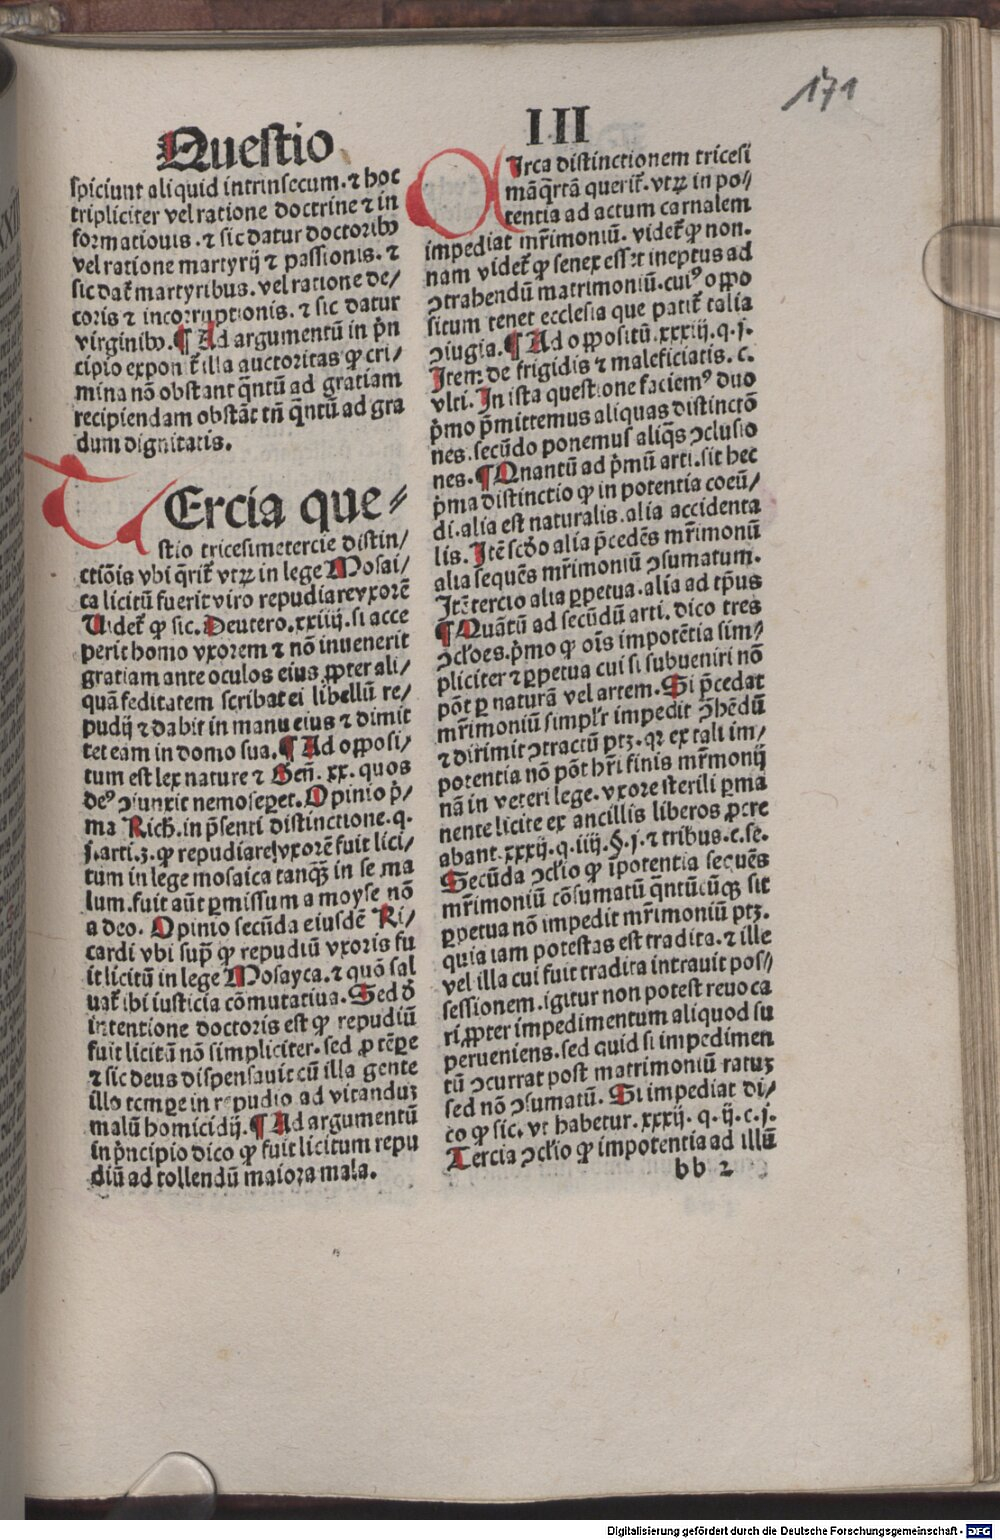 171
Questio
III
spiciunt aliquid intrinsecum. ⁊ hoc
tripliciter vel ratione doctrine ⁊ in
formationis. ⁊ sic datur doctoribꝰ
vel ratione martyrij ⁊ passionis. ⁊
sic dat᷑ martyribus. vel ratione de/
coris ⁊ incorruptionis. ⁊ sic datur
virginibꝰ. ¶ Ad argumentū in p̄n
cipio expon̄t᷑ illa auctoritas ꝙ cri/
mina nō obstant q̄ntū ad gratiam
recipiendam obstāt tn̄ q̄ntū ad gra
dum dignitatis.
TErcia que⸗
stio tricesimetercie distin/
ctiōis vbi q̄rit᷑ vtrꝫ in lege Mosai/
ca licitū fuerit viro repudiare vxorē
Videt᷑ ꝙ sic. Deutero. xxiiij. si acce
perit homo vxorem ⁊ nō inuenerit
gratiam ante oculos eius ꝓpter ali/
quā feditatem scribat ei libellū re/
pudij ⁊ dabit in manu eius ⁊ dimit
tet eam in domo sua. ¶ Ad opposi/
tum est lex nature ⁊ Gen̄. xx. quos
deꝰ ↄiunxit nemo seꝑet. Opinio p̄/
ma Rich. in p̄senti distinctione. q.
j. arti. 3. ꝙ repudiare vxorē fuit lici/
tum in lege mosaica tanqꝫ in se ma
lum. fuit aūt ꝑmissum a moyse nō
a deo. Opinio secūda eiusdē Ri/
cardi vbi sup̄ ꝙ repudiū vxoris fu
it licitū in lege Mosayca. ⁊ quō sal
uat᷑ ibi iusticia cōmutatiua. Sed d̄
intentione doctoris est ꝙ repudiū
fuit licitū nō simpliciter. sed ꝓ tēꝑe
⁊ sic deus dispensauit cū illa gente
illo temꝑe in repudio ad vitanduꝫ
malū homicidij. ¶ Ad argumentū
in p̄ncipio dico ꝙ fuit licitum repu
diū ad tollendū maiora mala.
CIrca distinctionem tricesi
māq̄rtā querit᷑. vtrꝫ in po⸗
tentia ad actum carnalem
impediat mr̄imoniū. videt᷑ ꝙ non.
nam videt᷑ ꝙ senex esset ineptus ad
ↄtrahendū matrimoniū. cuiꝰ oppo
situm tenet ecclesia que patit᷑ talia
ↄiugia. ¶ Ad oppositū. xxxiij. q. j.
Item de frigidis ⁊ maleficiatis. c.
vlti. In ista questione faciemꝰ duo
p̄mo p̄mittemus aliquas distinctō
nes. secūdo ponemus aliq̄s ↄclusio
nes. ¶ Quantū ad p̄mū arti. sit hec
p̄ma distinctio ꝙ in potentia coeū/
di. alia est naturalis. alia accidenta
lis. Itē sc̄do alia p̄cedēs mr̄imoniū
alia sequēs mr̄imoniū ↄsumatum.
Itē tercio alia ꝑpetua. alia ad tp̄us
¶ Quātū ad secūdū arti. dico tres
ↄclōes. p̄mo ꝙ oīs impotētia sim⸗
pliciter ⁊ ꝑpetua cui si subueniri nō
pōt ꝑ naturā vel artem. Si p̄cedat
mr̄imoniū simpl'r impedit ↄhēdū
⁊ dirimit ↄtractū ptꝫ. qꝛ ex tali im/
potentia nō pōt hr̄i finis mr̄monij
nā in veteri lege. vxore sterili ꝑma
nente licite ex ancillis liberos ꝓcre
abant. xxxij. q. iiij. §. j. ⁊ tribus. c. se.
Secūda ↄclō ꝙ īpotentia sequēs
mr̄imoniū cōsumatū qntūcūqꝫ sit
ꝑpetua nō impedit mr̄imoniū ptꝫ.
quia iam potestas est tradita. ⁊ ille
vel illa cui fuit tradita intrauit pos⸗
sessionem. igitur non potest reuoca
ri ꝓpter impedimentum aliquod su
perueniens. sed quid si impedimen
tū ↄcurrat post matrimoniū ratuꝫ
sed nō ↄsumatū. Si impediat di/
co ꝙ sic. vt habetur. xxxij. q. ij. c. j.
Tercia ↄclō ꝙ impotentia ad illū
bb 2
Digitalisierung gefördert durch die Deutsche Forschungsgemeinschaft - DFG